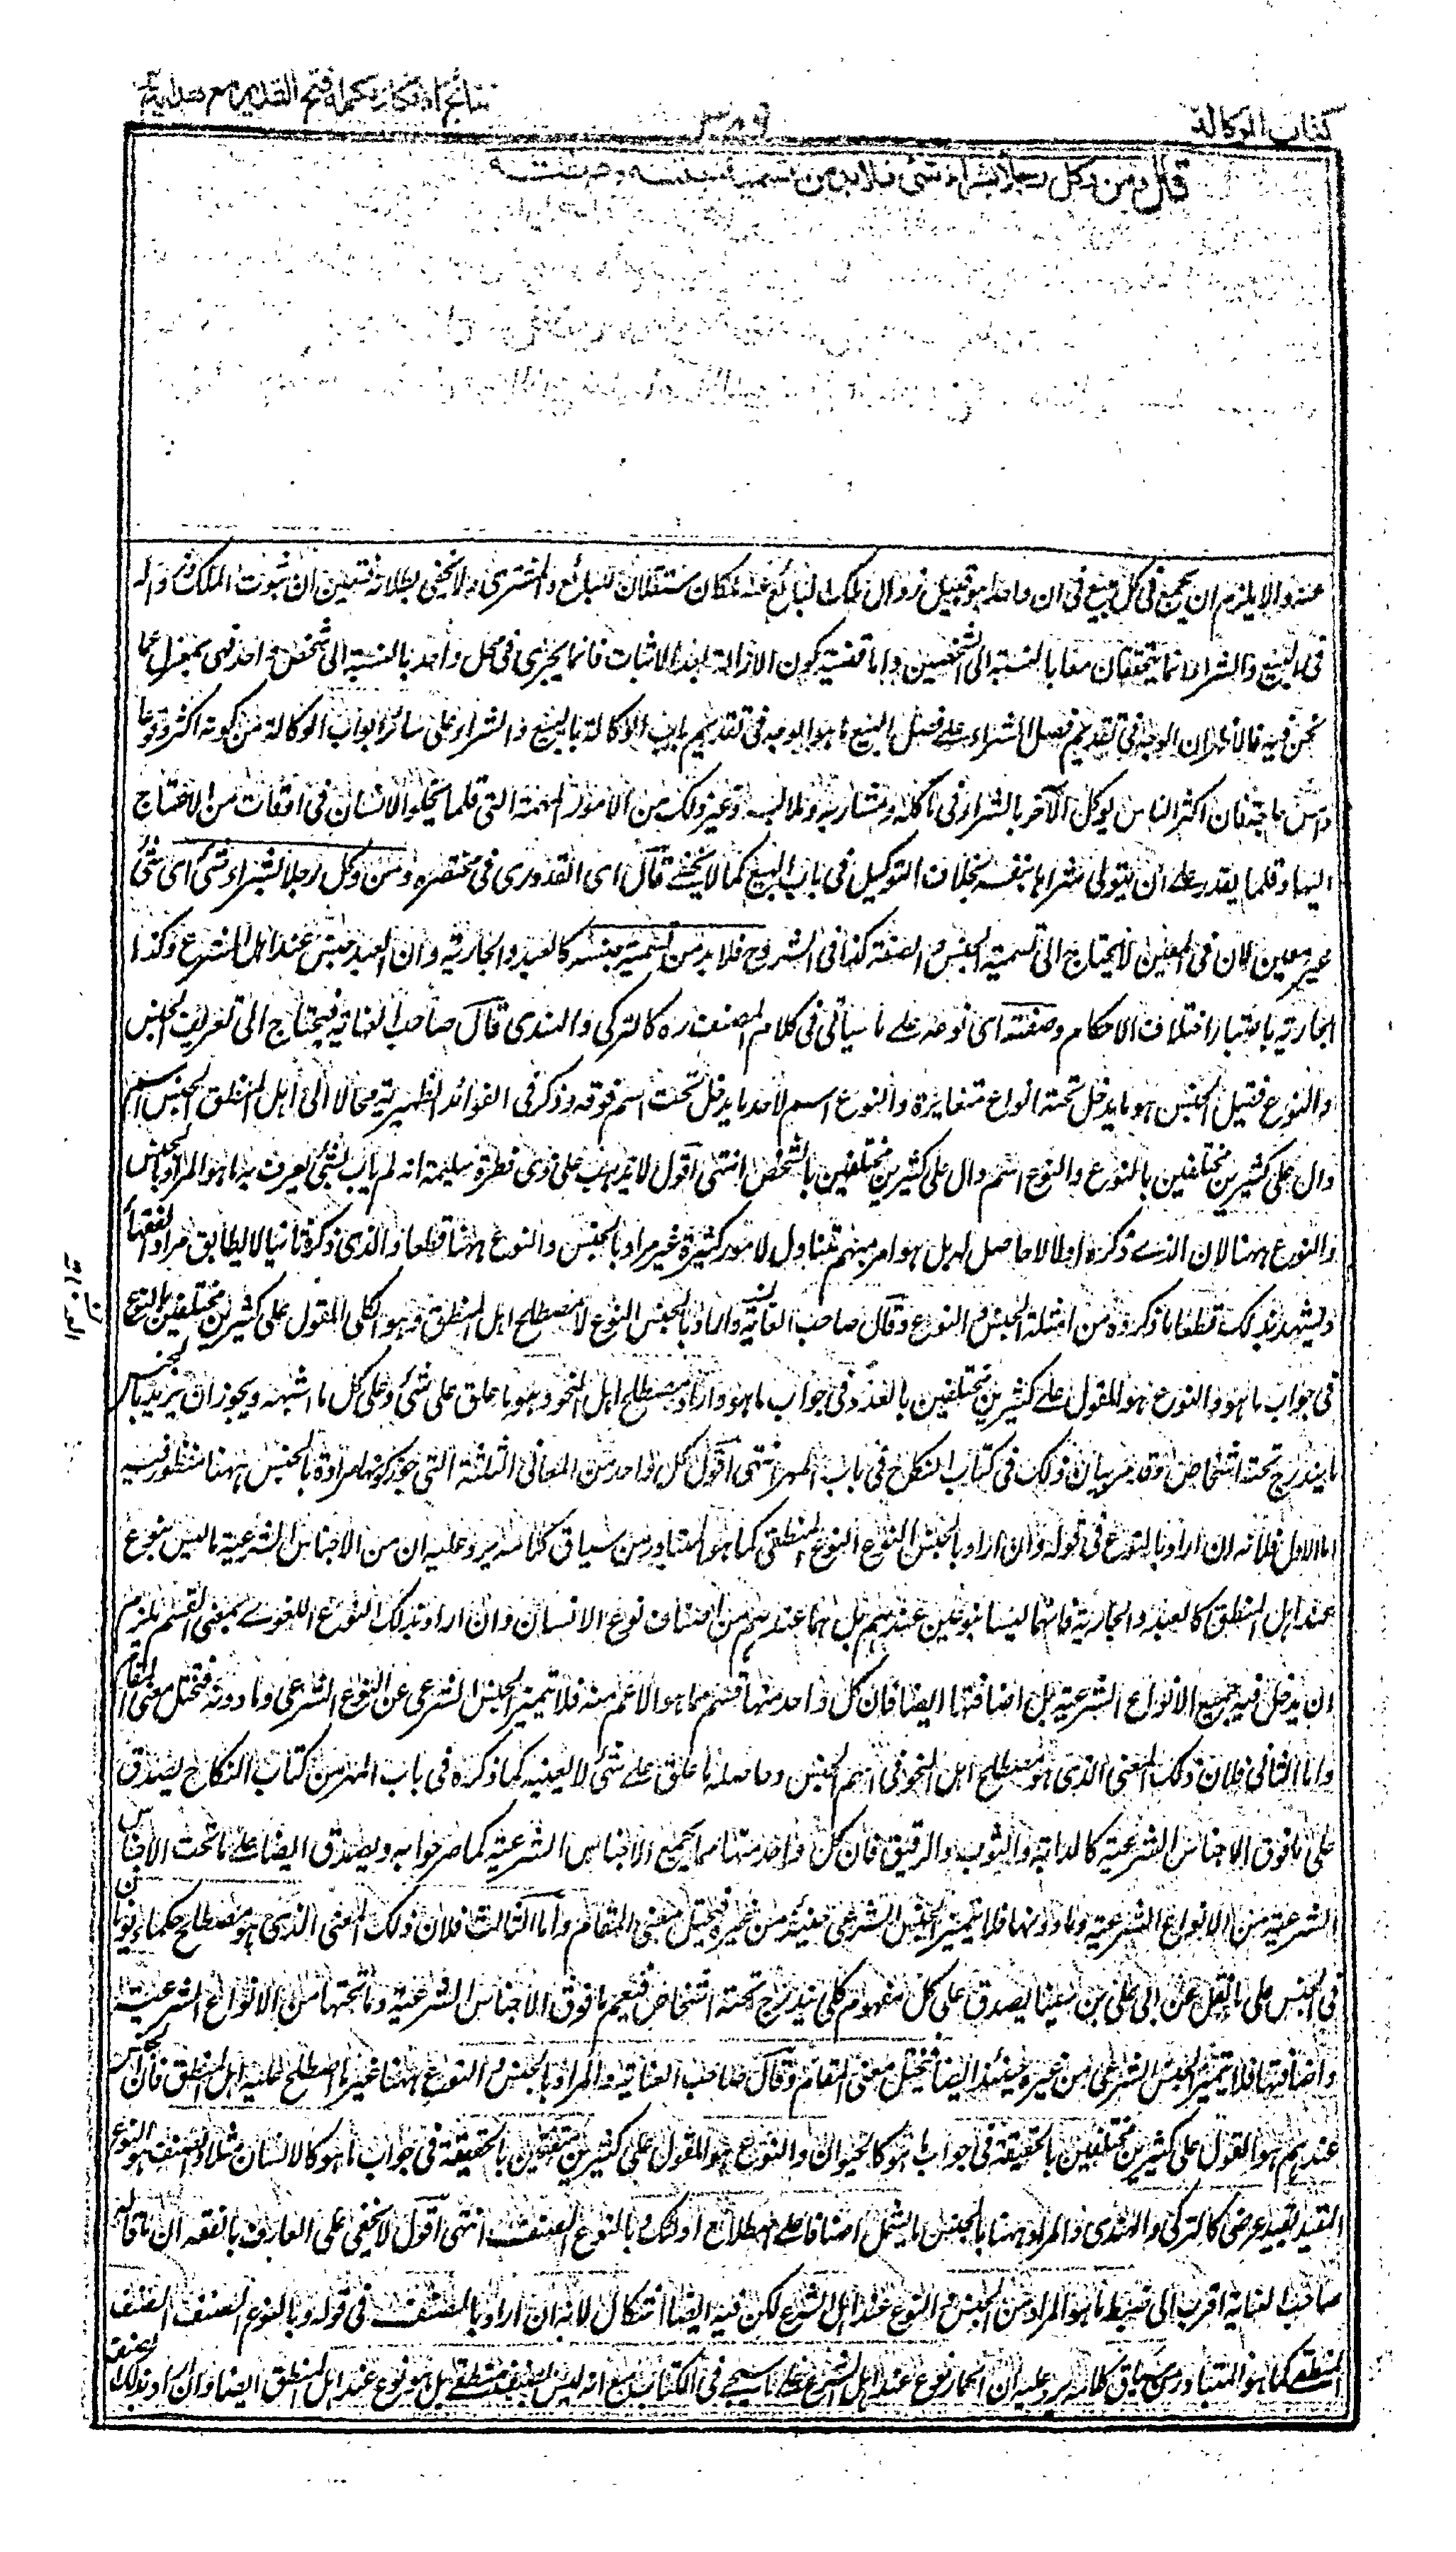 كتاب الوكالة
نتائج الافكار تكملة فتح القدير مع هداية
قال ومن وكل رجلا بشراء شئ فلا بد من تسمية جنسه وصفته
عنه والا يلزم ان يجمع فى كل مبيع فى ان واحد هو قبيل زوال ملك البائع عنه ملكان مستقلان للبائع والمشترى ولا يخفى بطلانه فتبين ان ثبوت الملك وزواله
فى البيع والشراء انما يتحققان معا بالنسبة الى الشخصين واما قضية كون الازالة بعد الاثبات فانما يجرى فى محل واحد بالنسبة الى شخص واحد فهى بمعزل عما
نحن فيه فالاظهر ان الوجه فى تقديم فصل الشراء على فصل البيع ما هو الوجه فى تقديم باب الوكالة بالبيع والشراء على سائر ابواب الوكالة من كونه اكثر وقوعا
وامس حاجة فان اكثر الناس يوكل الآخر بالشراء فى ماكله ومشاربه وملابسه وغير ذلك من الامور المهمة التى قلما يخلو الانسان فى اوقات من الاحتياج
اليها وقلما يقدر على ان يتولى شراها بنفسه بخلاف التوكيل فى باب البيع كما لا يخفى قال اى القدورى فى مختصره ومن وكل رجلا بشراء شئ اى شئ
غير معين لان فى المعين لا يحتاج الى تسمية الجنس والصفة كذا فى الشروح فلا بد من تسمية جنسه كالعبد والجارية وان العبد جنس عند اهل الشرع وكذا
الجارية باعتبار اختلاف الاحكام وصفته اى نوعه على ما سياتى فى كلام المصنف ره كالتركى والهندى قال صاحب العناية فيحتاج الى تعريف الجنس
والنوع فقيل الجنس هو ما يدخل تحته انواع متغايرة والنوع اسم لاحد ما يدخل تحت اسم فوقه وذكر فى الفوائد الظهيرية محالا الى اهل المنطق الجنس اسم
دال على كثيرين مختلفين بالنوع والنوع اسم دال على كثيرين مختلفين بالشخص انتهى اقول لا يذهب على ذى فطرة سليمة انه لم يات بشئ يعرف به ما هو المراد بالجنس
والنوع ههنا لان الذى ذكره اولا لا حاصل له بل هو امر مبهم متناول لامور كثيرة غير مراد بالجنس والنوع ههنا قطعا والذى ذكره ثانيا لا يطابق مراد الفقهاء
ويشهد بذلك قطعا ما ذكروه من امثلة الجنس والنوع وقال صاحب الغاية واراد بالجنس النوع لا مصطلح اهل المنطق وهو الكلى المقول على كثيرين مختلفين بالنوع
فى جواب ما هو والنوع هو المقول على كثيرين مختلفين بالعدد فى جواب ما هو واراد مصطلح اهل النحو وهو ما علق على شئ وعلى كل ما اشبهه ويجوز ان يريد بالجنس
ما يندرج تحته اشخاص وقد مر بيان ذلك فى كتاب النكاح فى باب المهر انتهى اقول كل واحد من المعانى الثلثة التى جوز كونها مرادة بالجنس ههنا منظور فيه
اما الاول فلانه ان اراد بالنوع فى قوله وان اراد بالجنس النوع النوع المنطقى كما هو المتبادر من سياق كلامه يرد عليه ان من الاجناس الشرعية ما ليس بنوع
عند اهل المنطق كالعبد والجارية فانهما ليسا بنوعين عندهم بل هما عندهم من اصناف نوع الانسان وان اراد بذلك النوع اللغوى بمعنى القسم يلزم
ان يدخل فيه جميع الانواع الشرعية بل اصنافها ايضا فان كل واحد منها قسم مما هو الاعم منه فلا يتميز الجنس الشرعى عن النوع الشرعى وما دونه فيختل معنى المقام
واما الثانى فلان ذلك المعنى الذى هو مصطلح اهل النحو فى اسم الجنس وحاصله ما علق على شئ لا بعينه كما ذكره فى باب المهر من كتاب النكاح يصدق
على ما فوق الاجناس الشرعية كالدابة والثوب والرقيق فان كل واحد منها مما يجمع الاجناس الشرعية كما صرحوا به ويصدق ايضا على ما تحت الاجناس
الشرعية من الانواع الشرعية وما دونها فلا يتميز الجنس الشرعى حينئذ من غيره فيختل معنى المقام واما الثالث فلان ذلك المعنى الذى هو مصطلح حكماء يونان
فى الجنس على ما نقل عن ابى على بن سينا يصدق على كل مفهوم كلى يندرج تحته اشخاص فيعم ما فوق الاجناس الشرعية وما تحتها من الانواع الشرعية
واصنافها فلا يتميز الجنس الشرعى من غيره حينئذ ايضا فيختل معنى المقام وقال صاحب العناية والمراد بالجنس والنوع ههنا غير ما اصطلح عليه اهل المنطق فان الجنس
عندهم هو المقول على كثيرين مختلفين بالحقيقة فى جواب ما هو كالحيوان والنوع هو المقول على كثيرين متفقين بالحقيقة فى جواب ما هو كالانسان مثلا والصنف هو النوع
المقيد بقيد عرضى كالتركى والهندى والمراد ههنا بالجنس ما يشمل اصنافا على اصطلاح اولئك وبالنوع الصنف انتهى اقول لا يخفى على العارف بالفقه ان ما قاله
صاحب العناية اقرب الى ضبط ما هو المراد من الجنس والنوع عند اهل الشرع لكن فيه ايضا اشكال لانه ان اراد بالصنف فى قوله وبالنوع الصنف الصنف
المنطقى كما هو المتبادر من سياق كلامه يرد عليه ان الحمار نوع عند اهل الشرع على ما سيجئ فى الكتاب مع انه ليس بصنف منطقى بل هو نوع عند اهل المنطق ايضا وان اراد بذلك الصنف